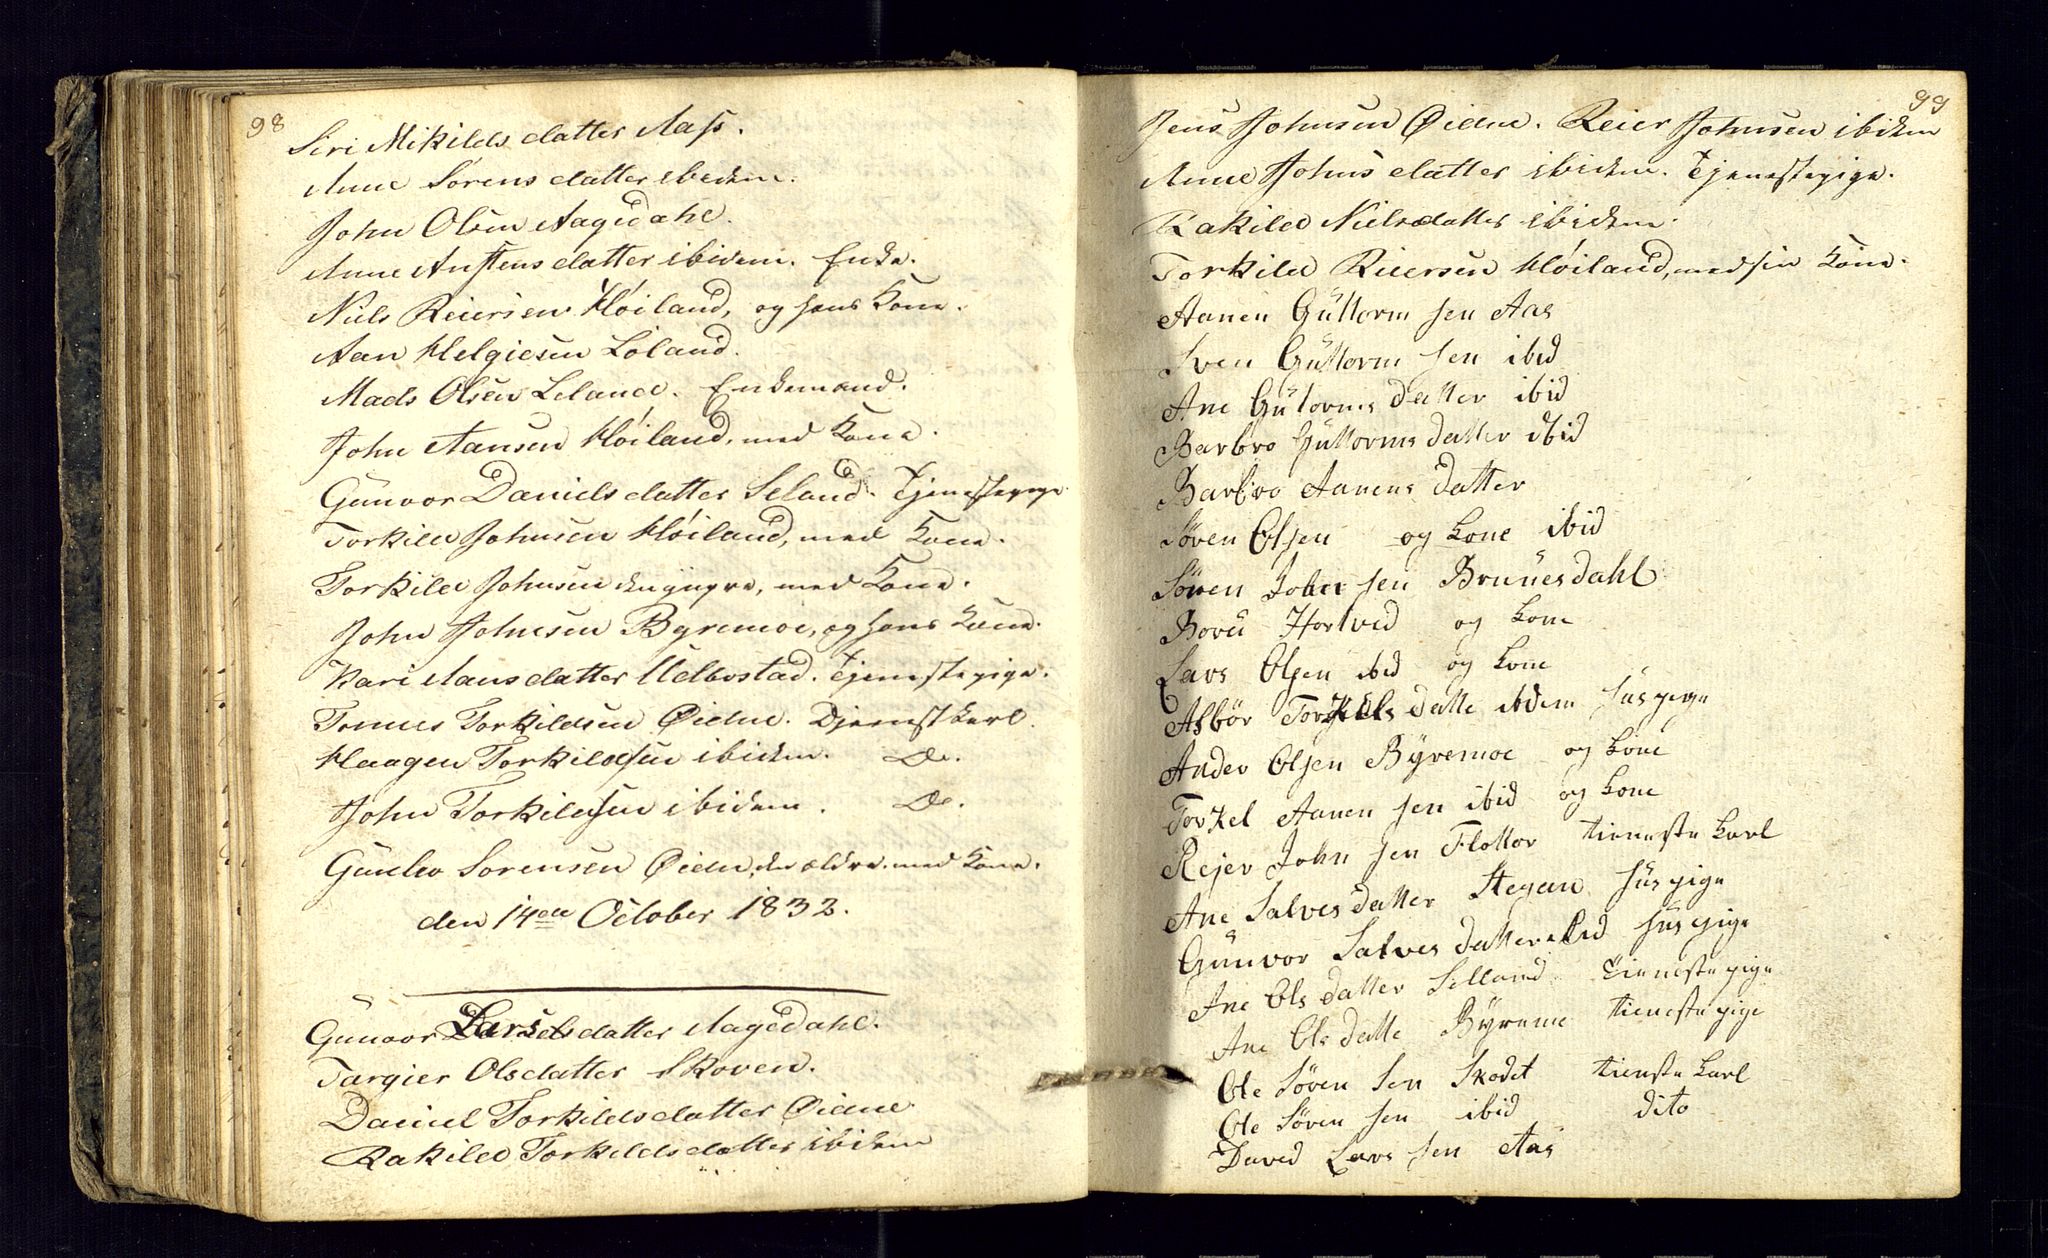 98
Siri Mikilds datter Aas.
Anne Sørens datter ibidem.
John Olsen Aagedahl.
Anne Austens datter ibidem. Enke.
Niels Reiersen Høiland, og hans Kone.
Aan Helgiesen Loland.
Mads Olsen Leland. Enkemand.
John Aansen Høiland, med Kone.
Gunvor Daniels datter Seland. Tjenestepige
Torkild Johnsen Høiland, med Kone.
Torkild Johnsen den yngre, med Kone.
John Johnsen Byremoe, og hans Kone.
Kari Aans datter Udbostad. Tjenestepige.
Tomes Torkildsen Øidne. Djenestkarl.
Haagen Torkildsen ibidem. Do.
John Torkildsen ibidem. Do.
Gunlev Sorensen Øidne, den ældre. med Kone.
den 14de October 1832.
Gunvor Larsdatter Aagedahl.
Targier Olsdatter Skoven.
Daniel Torkildsdatter Øidne
Rakild Torkildsdatter ibidem
99
Jens Johnsen Øidne. Reier Johnsen ibidem
Anne Johns datter ibidem. Tjenestepige.
Rakild Nielsdatter ibidem.
Torkild Reiersen Høiland, med sin Kone.
Aanen Guttorm sen Aas
Sven Guttorm sen ibid
Ane Gutorms datter ibid
Barbro Guttorms datter ibid
Barbro Aanens datter
Søven Olsen og kone ibid
Søven Jober sen Bruuesdahl
Bovel Hortved og kone
Lars Olsen ibid og kone
Asbør Torkels datte ibdem huspige
Ander Olsen Byremoe og kone
Torkel Aanen sen ibid og kone
Rejer John sen Flottor tieneste karl
Ane Salves datter Stegan huspige
Gunvor Salves datter ibid huspige
Ane Ols datter Selland tieneste pige
Ane Ols datte Byreme tieneste pige
Ole Søven sen Skodet tienste karl
Ole Søven sen ibid dito
David Lars sen Aas